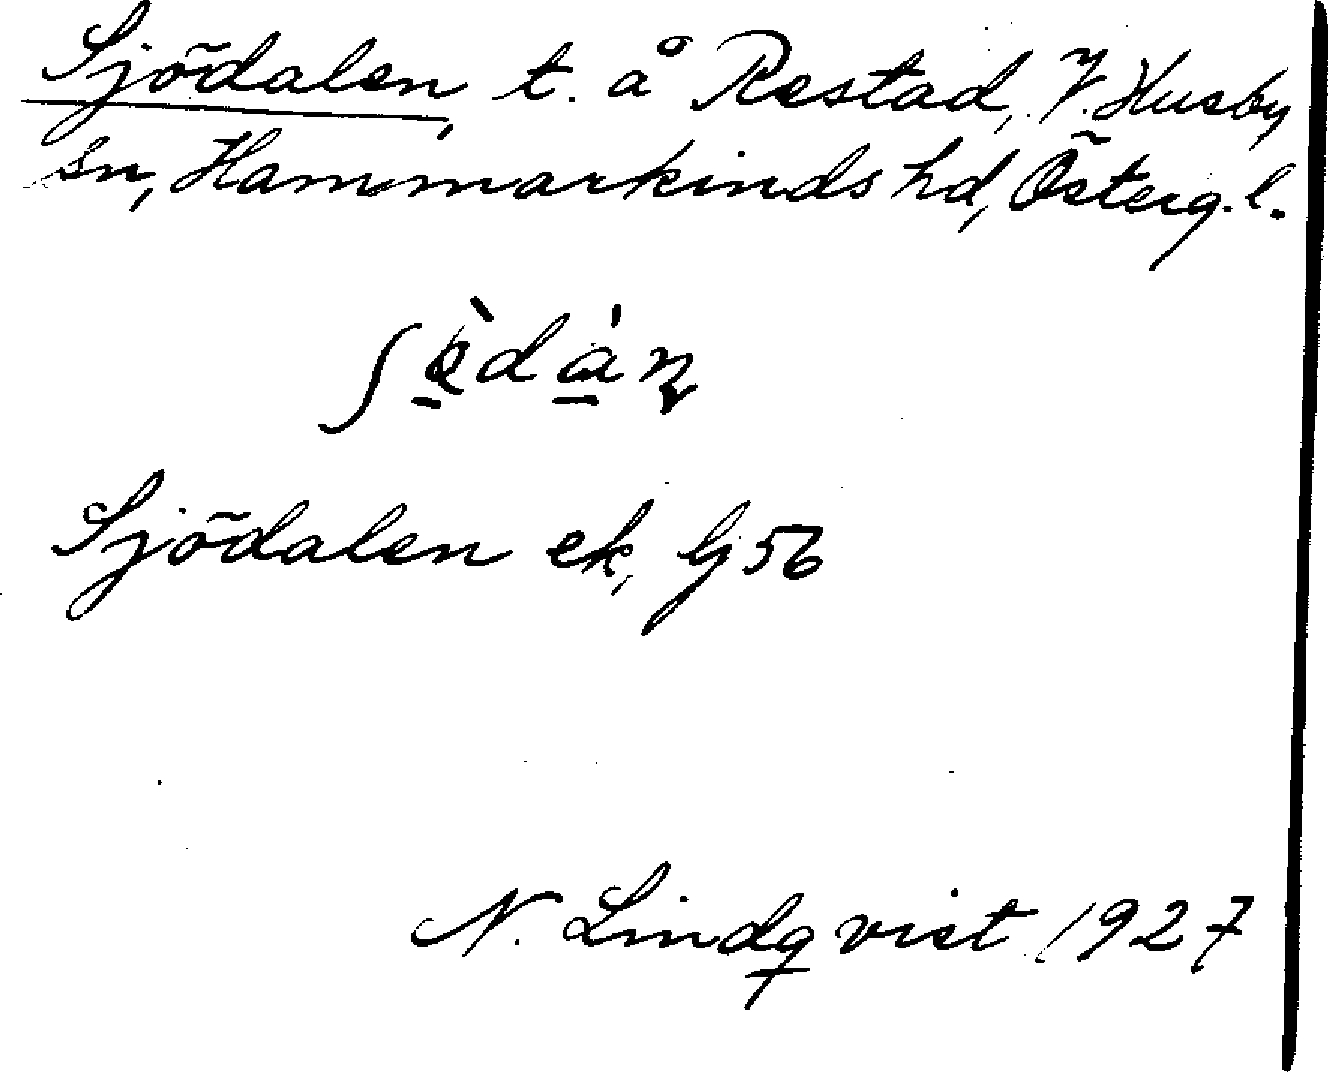 Sjödalen, t. å Restad, V. Husby
sn, Hammarkinds hd, Österg. l.
Sjödalen ek, Gj 56
N. Lindqvist 1927